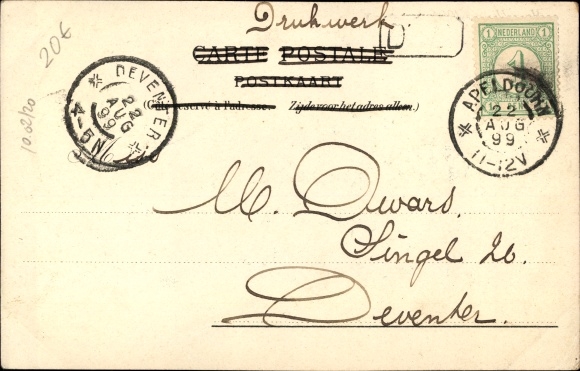 Drukwerk
D
CARTE POSTALE
POSTKAART
(Côté réservé à l'adresse. Zijde voor het adres alleen.)
20€
10.02/20
DEVENTER
22
AUG
99
4-5N
NEDERLAND
1 1
1
APELDOORN
22
AUG
99
11-12V
M. Dwars.
Singel 20.
Deventer.